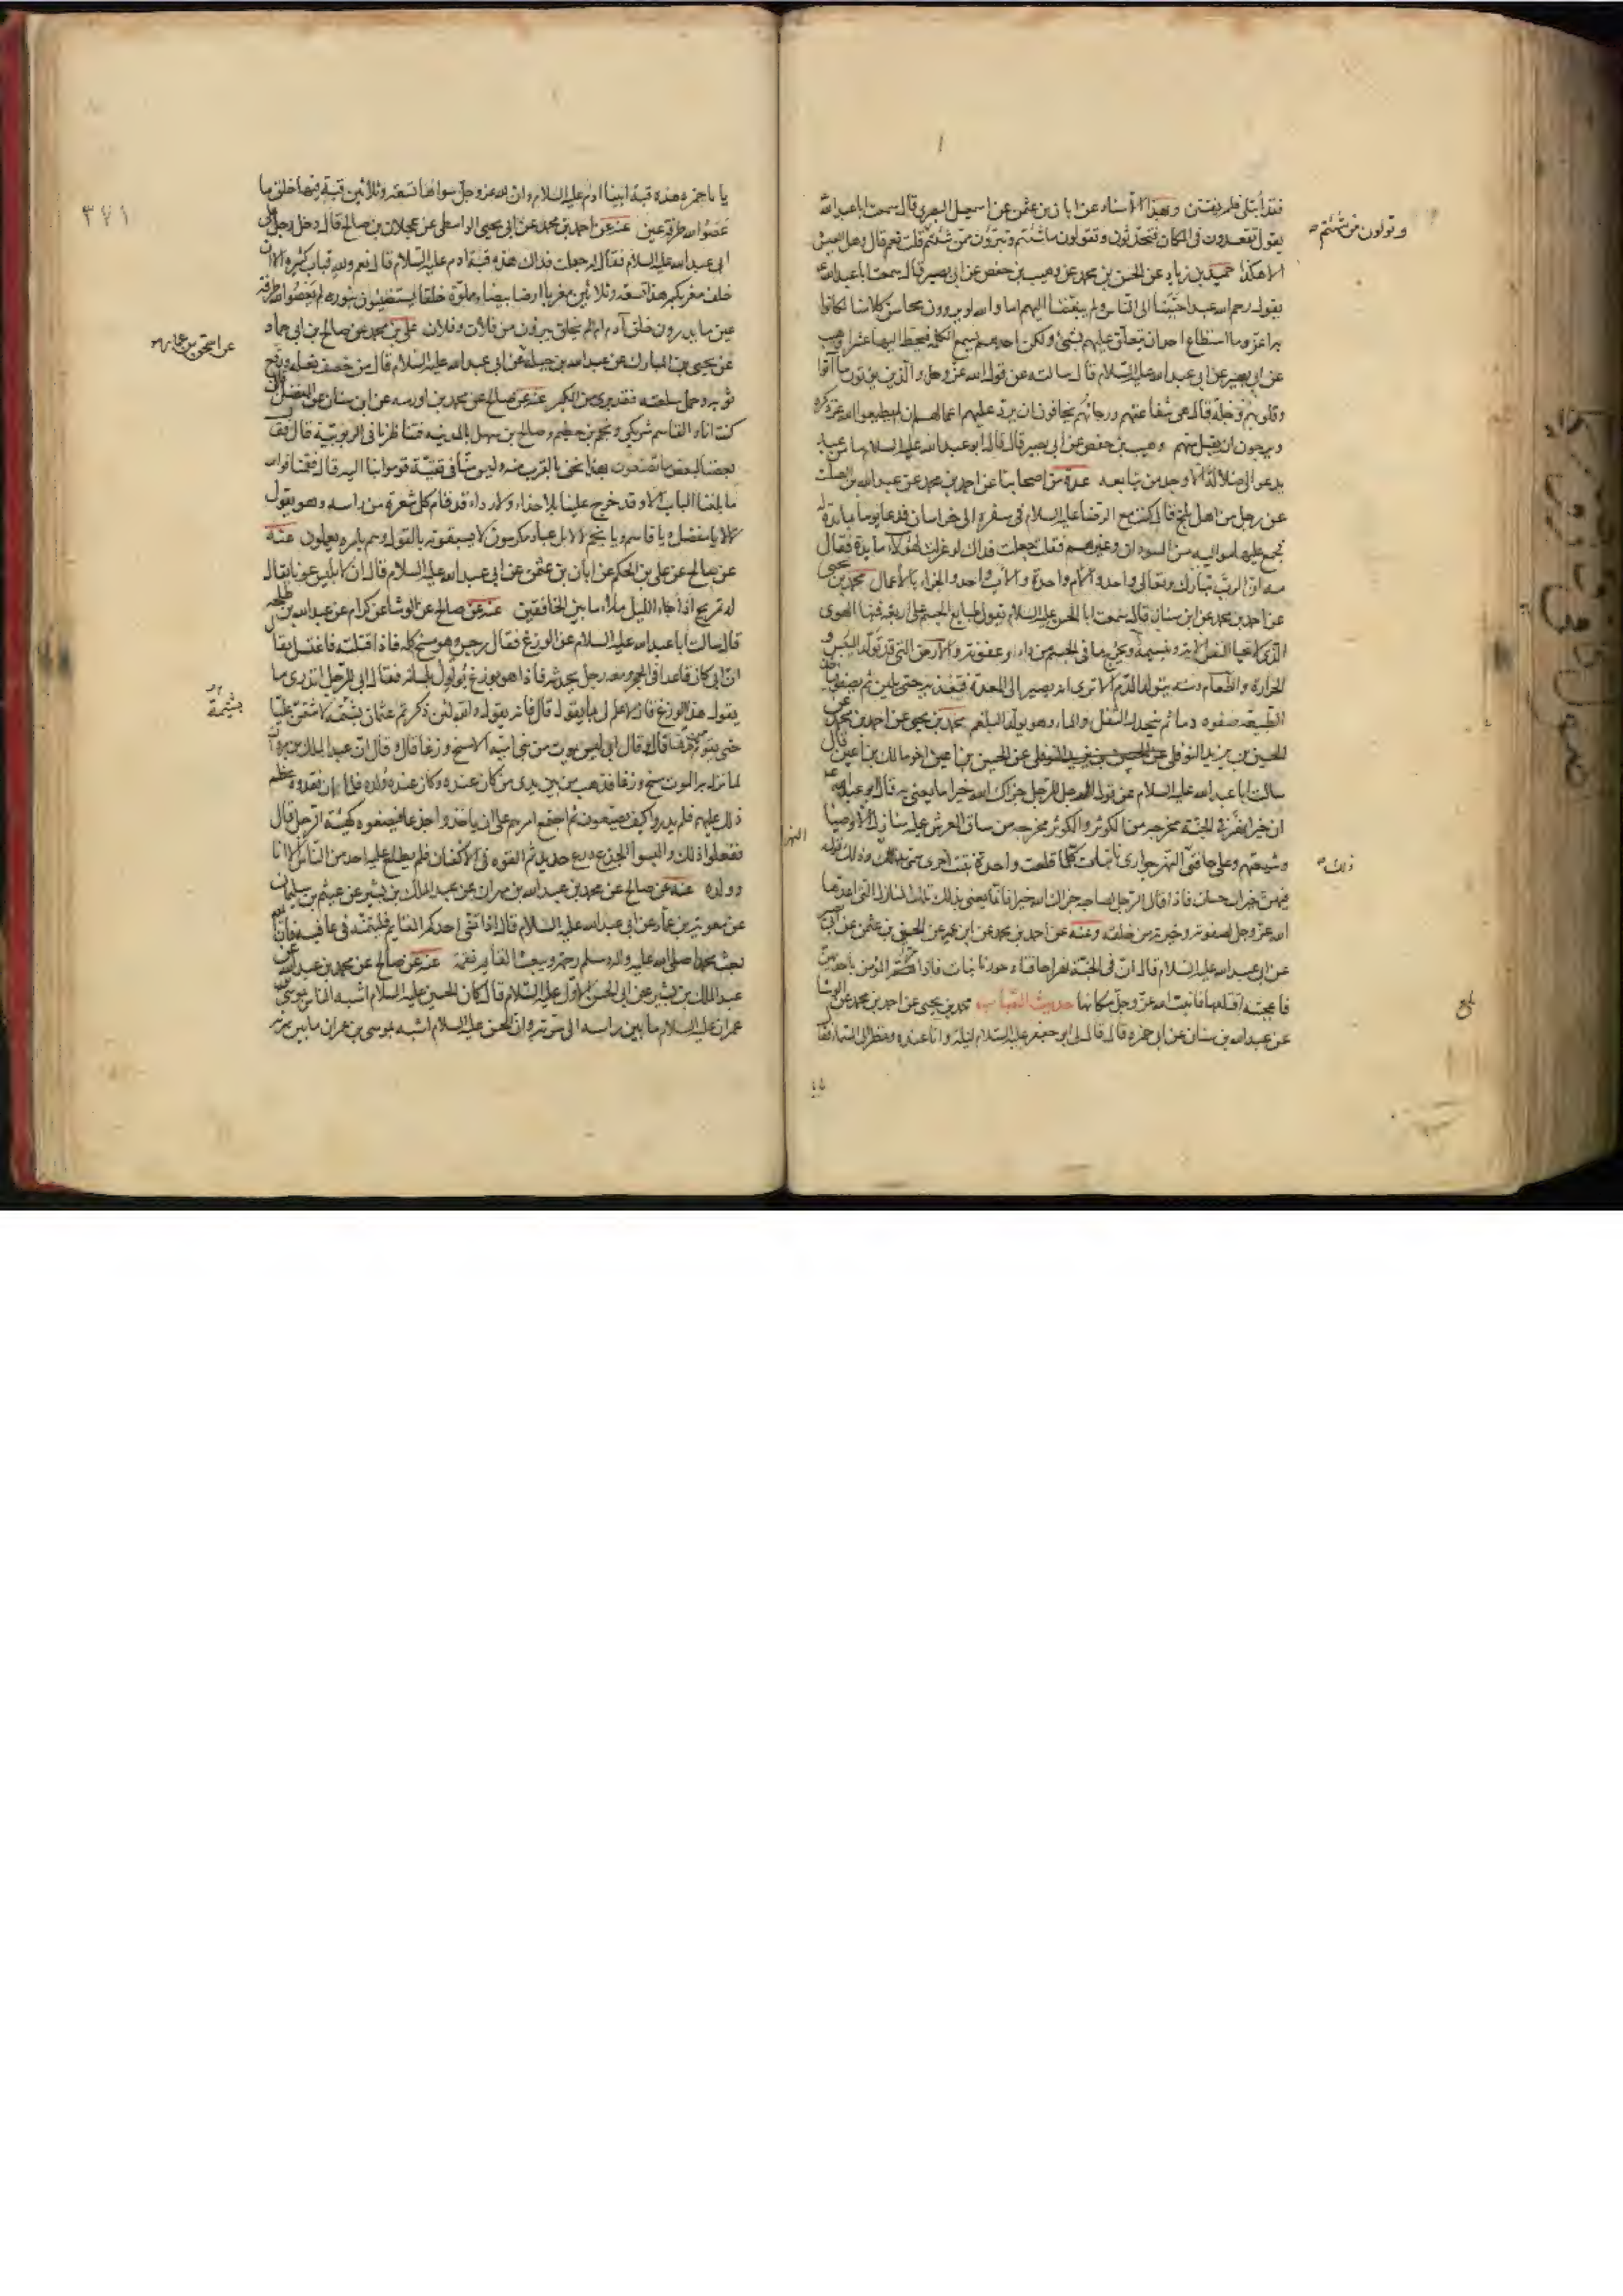 فقد ابتلى فلم يفتتن وبهذا الاسناد عن ابان بن عثمن عن اسمعيل البصرى قال سمعت ابا عبدالله
يقول تقعدون فى المكان فتحدثون وتقولون ما شئتم وتبرؤن ممن شئتم قلت نعم قال وهل العيش
وتولون من شئتم
الا هكذا حميد بن زياد عن الحسن بن محمد عن وهيب بن حفص عن ابى بصير قال سمعت ابا عبدالله
يقول رحم الله عبدا حببنا الى الناس ولم يبغضنا اليهم اما والله لو يروون محاسن كلامنا لكانوا
به اعز وما استطاع احد ان يتعلق عليهم بشئ ولكن احدهم يسمع الكلمة فيحط اليها عشرا وهيب
عن ابى بصير عن ابى عبد الله عليه السلام قال سالته عن قول الله عز وجل والذين يؤتون ما آتوا
وقلوبهم وجلة قال هى شفاعتهم ورجاؤهم يخافون ان ترد عليهم اعمالهم ان لم يطيعوا الله عز ذكره
ويرجون ان يقبل منهم وهيب بن حفص عن ابى بصير قال قال ابو عبد الله عليه السلام ما من عبد
يدعو الى ضلالة الا وجد من يتابعه عدة من اصحابنا عن احمد بن محمد عن عبد الله بن الصلت
عن رجل من اهل بلخ قال كنت مع الرضا عليه السلام فى سفره الى خراسان فدعا يوما بمائدة له
فجمع عليها مواليه من السودان وغيرهم فقلت جعلت فداك لو عزلت لهؤلاء مايدة فقال
مه ان الرب تبارك وتعالى واحد والام واحدة والاب واحد والجزاء بالاعمال محمد بن يحيى
عن احمد بن محمد عن ابن سنان قال سمعت ابا الحسن عليه السلام يقول طبايع الجسم على اربعة فمنها الهوى
الذى لا تحيا النفس الا به وبنسيمه ويخرج ما فى الجسم من داء وعفونة والارض التى قد تولد اليبس و
الحرارة والطعام ومنه يتولد الدم الا ترى انه يصير الى المعدة فتغذيه حتى يلين ثم يصفو فتاخذ
الطبيعة صفوه دما ثم ينحدر الثفل والماء وهو يولد البلغم محمد بن يحيى عن احمد بن محمد عن
الحسين بن يزيد النوفلى عن الحسين بن اعين اخو مالك بن اعين قال
سالت ابا عبد الله عليه السلام عن قول الرجل للرجل جزاك الله خيرا ما يعنى به قال ابو عبد الله
ان خيرا نهر فى الجنة مخرجه من الكوثر والكوثر مخرجه من ساق العرش عليه منازل الاوصياء
النهر
وشيعتهم وعلى حافتى النهر جوارى نابتات كلما قلعت واحدة نبتت اخرى سمى بذلك وذلك قوله
ذلك
فيهن خيرات حسان فاذا قال الرجل لصاحبه جزاك الله خيرا فانما يعنى بذلك تلك المنازل التى اعدها
الله عز وجل لصفوته وخيرته من خلقه وعنه عن احمد بن محمد عن ابن ابى عمير عن الحسين بن عثمن عن ابى
عن ابى عبد الله عليه السلام قال ان فى الجنة نهرا حافتاه حورنابتات فاذا مر المؤمن باحديهن
فاعجبته اقتلعها فانبت الله عز وجل مكانها حديث القباب محمد بن يحيى عن احمد بن محمد عن الوشا
عن عبد الله بن سنان عن ابى حمزه قال قال لى ابو جعفر عليه السلام ليلة وانا عنده ونظر الى السماء فقا
بلغ
يا ابا حمزه هذه قبة ابينا ادم عليه السلام وان لله عز وجل سواها تسعة وثلاثين قبة فيها خلق ما
عصوا الله طرفة عين عنه عن احمد بن محمد عن ابى يحيى الواسطى عن عجلان بن صالح قال دخل رجل على
٣٧١
ابى عبد الله عليه السلام فقال له جعلت فداك هذه قبة ادم عليه السلام قال نعم ولله قباب كثيرة الا ان
خلف مغربكم هذا تسعة وثلاثين مغربا ارضا بيضاء مملوة خلقا يستضيئون بنوره لم يعصوا الله طرفة
عين ما يدرون خلق آدم ام لم يخلق يبرؤن من فلان وفلان على بن محمد عن صالح بن ابى حماد
عن يحيى بن المبارك عن عبد الله بن جبلة عن ابى عبد الله عليه السلام قال من خصف نعله ورقع
عن اسحق بن عمار
ثوبه وحمل سلعته فقد برئ من الكبر عنه عن صالح عن محمد بن اورمه عن ابن سنان عن المفضل قال
كنت انا والقاسم شريكى ونجم بن حطيم وصالح بن سهل بالمدينه فتناظرنا فى الربوبية قال فقا
بعضنا لبعض ما تصنعون بهذا نحن بالقرب منه وليس منا فى تقية قوموا بنا اليه قال فقمنا فوالله
ما بلغنا الباب الا وقد خرج علينا بلا حذاء ولا رداء قد قام كل شعرة من راسه وهو يقول
لا لا يا مفضل ويا قاسم ويا نجم لا لا بل عباد مكرمون لا يسبقونه بالقول وهم بامره يعملون عنه
عن صالح عن على بن الحكم عن ابان بن عثمن عن ابى عبد الله عليه السلام قال ان لابليس عونا يقال
له تمريح اذا جاء الليل ملأ ما بين الخافقين عنه عن صالح عن الوشا عن كرام عن عبد الله بن طلحه
قال سالت ابا عبد الله عليه السلام عن الوزغ فقال رجس وهو مسخ كله فاذا قتلته فاغتسل فقا
ان ابى كان قاعدا فى الحجر ومعه رجل يحدثه فاذا هو بوزغ يولول بلسانه فقال ابى للرجل اتدرى ما
يقول هذا الوزغ قال لا علم لى بما يقول قال فانه يقول والله لئن ذكرتم عثمان بشتمة لاشتمن عليا
بشتيمة
حتى يقوم من هاهنا قال وقال ابى ليس يموت من بنى امية الا مسخ وزغا قال وقال ان عبد الملك بن مروان
لما نزل به الموت مسخ وزغا فذهب من بين يدى من كان عنده وكان عنده ولده فلما ان فقدوه عظم
ذلك عليهم فلم يدروا كيف يصنعون ثم اجتمع امرهم على ان ياخذوا جذعا فيصنعوه كهيئة الرجل قال
ففعلوا ذلك والبسوا الجذع درع حديد ثم القوه فى الاكفان فلم يطلع عليه احد من الناس الا انا
وولده عنه عن صالح عن محمد بن عبد الله بن مهران عن عبد الملك بن بشير عن عيثم بن سليمان
عن معويه بن عمار عن ابى عبد الله عليه السلام قال اذا تمنى احدكم القايم فليتمنه فى عافية فان الله
بعث محمدا صلى الله عليه واله وسلم رحمة ويبعث القايم نقمة عنه عن صالح عن محمد بن عبد الله عن
عبد الملك بن بشير عن ابى الحسن الاول عليه السلام قال كان الحسن عليه السلام اشبه الناس بموسى بن
عمران عليه السلام ما بين راسه الى سرته وان الحسين عليه السلام اشبه بموسى بن عمران ما بين سرته